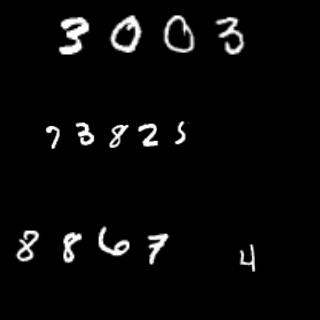 3003
73825
8867 4